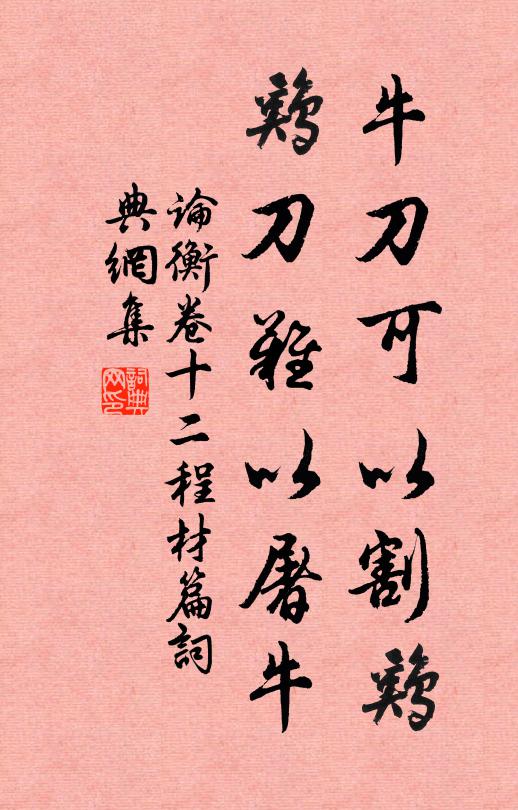 牛刀可以割鷄
鷄刀難以屠牛
論衡卷十二程材篇詞
典網集
詞典网印